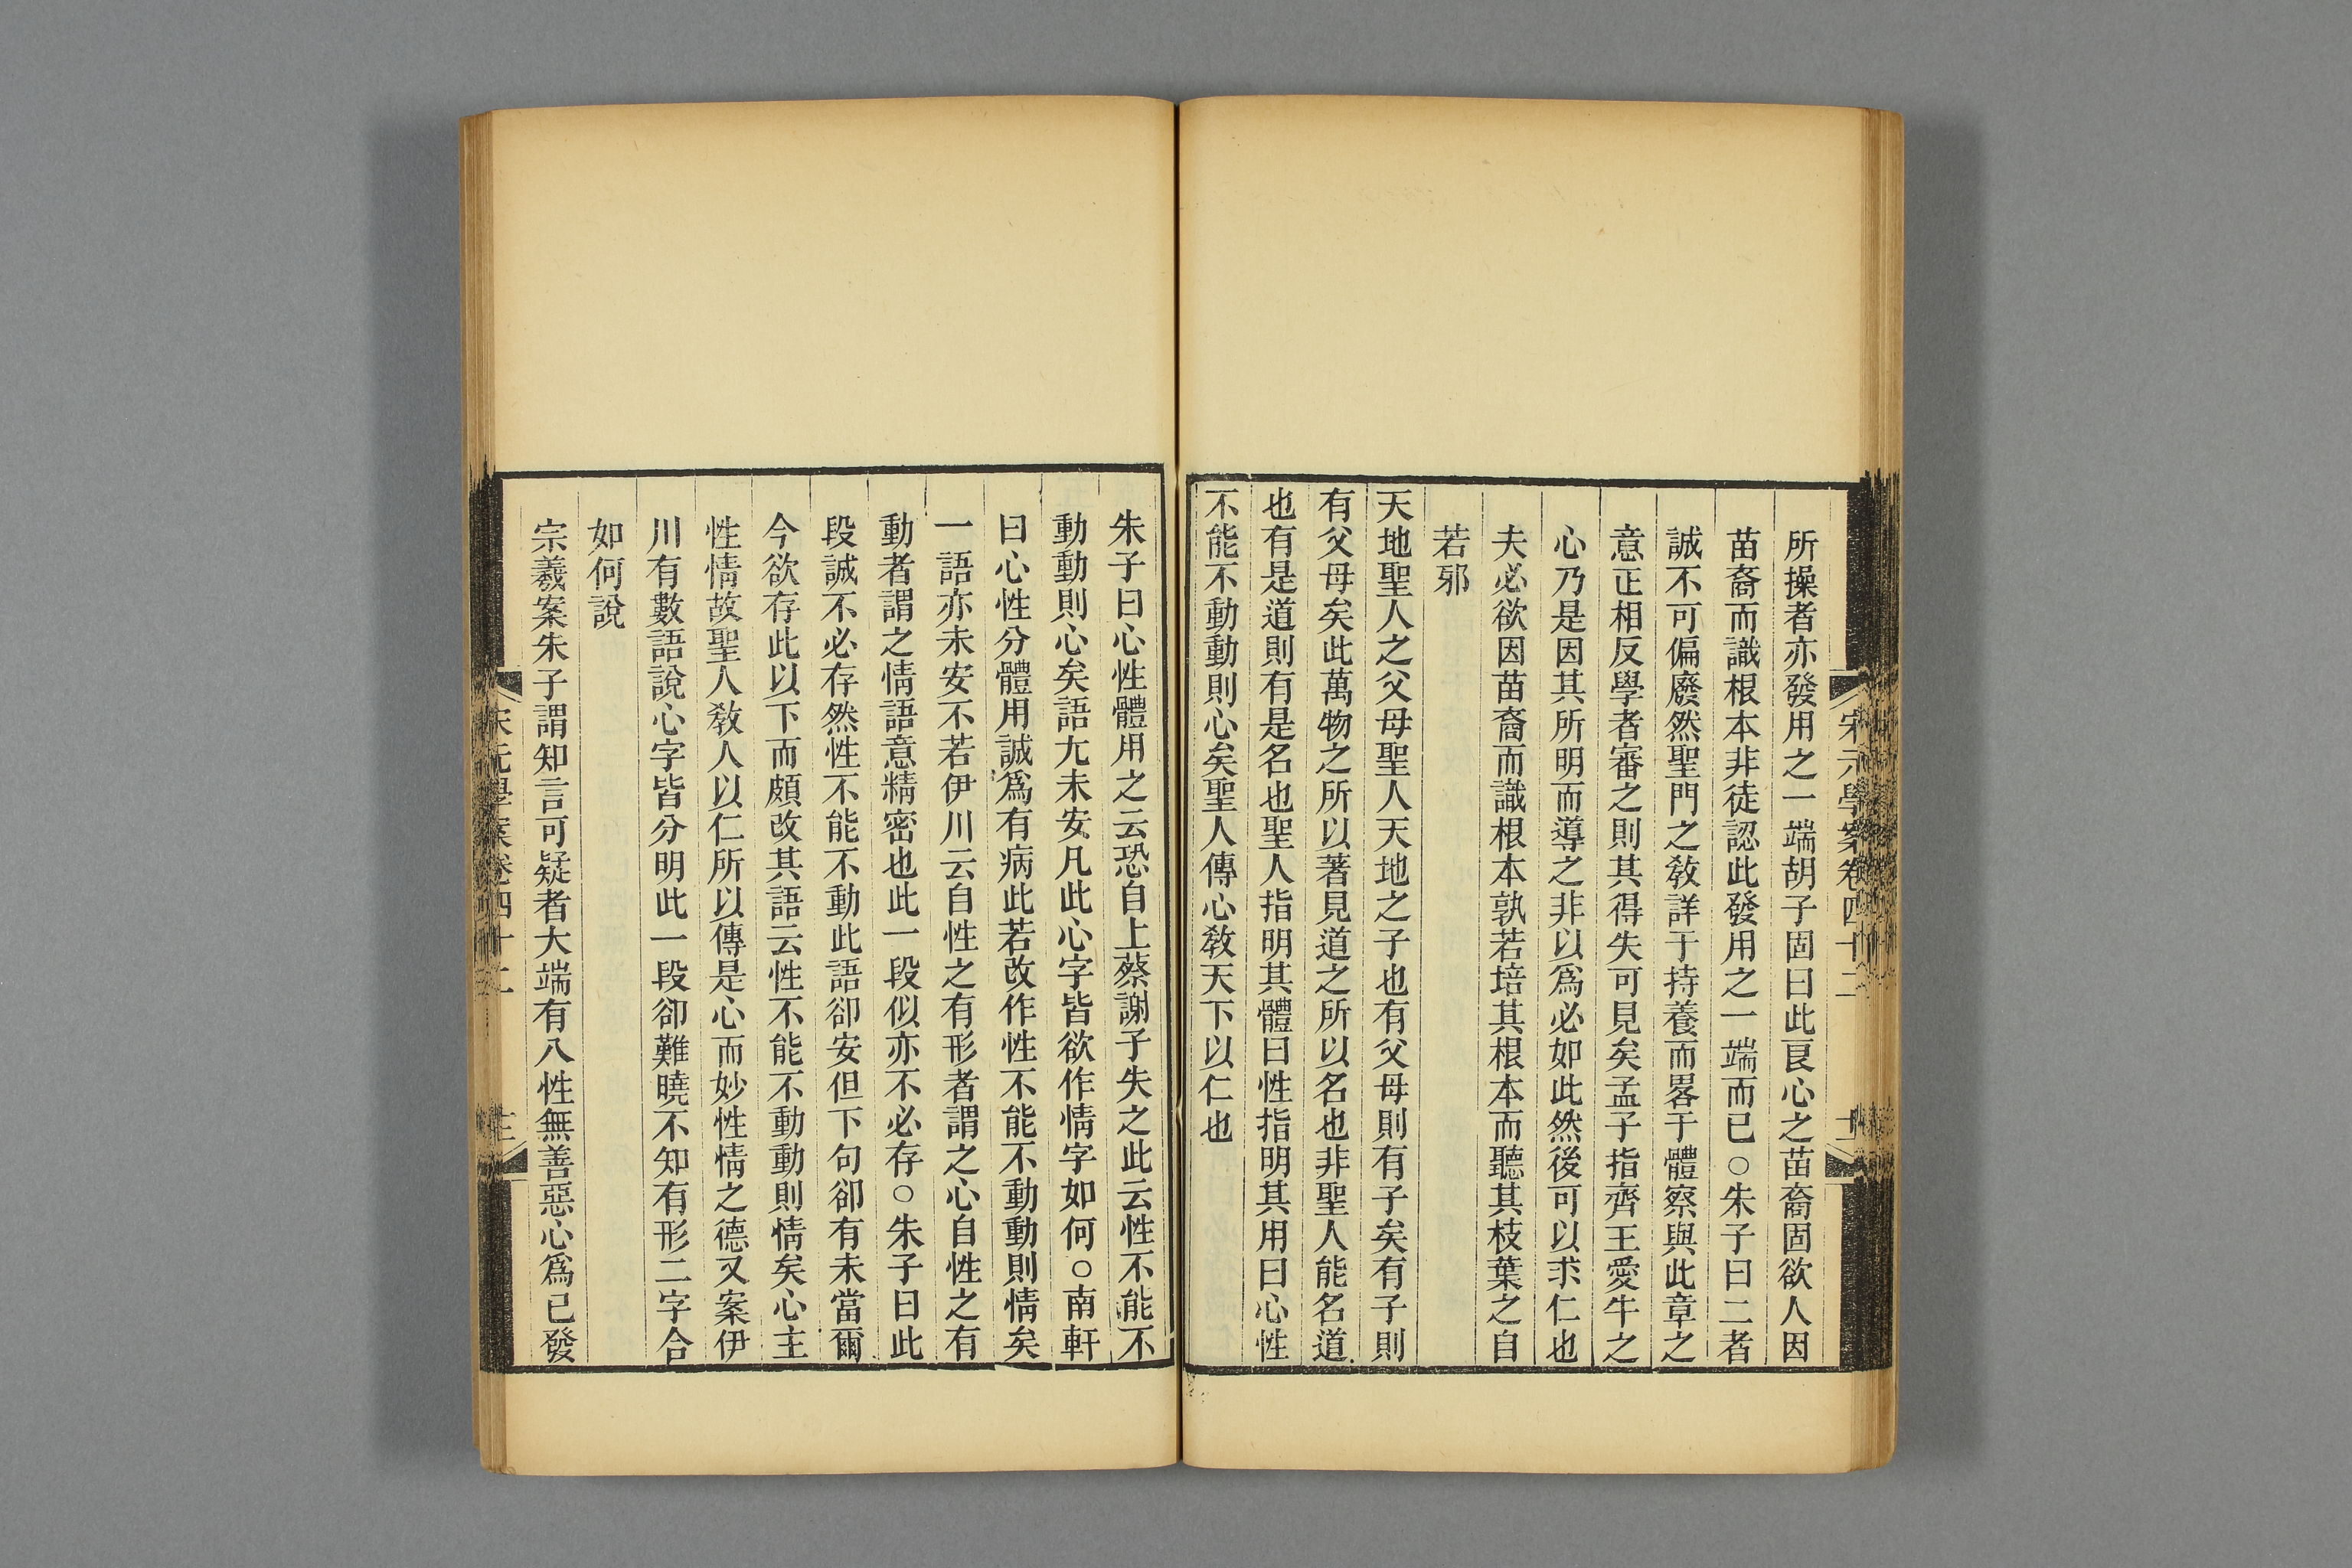 宋元學案卷四十二
所操者亦發用之一端胡子固曰此良心之苗裔固欲人因
苗裔而識根本非徒認此發用之一端而已○朱子曰二者
誠不可偏廢然聖門之敎詳于持養而畧于體察與此章之
意正相反學者審之則其得失可見矣孟子指齊王愛牛之
心乃是因其所明而導之非以爲必如此然後可以求仁也
夫必欲因苗裔而識根本孰若培其根本而聽其枝葉之自
若邪
天地聖人之父母聖人天地之子也有父母則有子矣有子則
有父母矣此萬物之所以著見道之所以名也非聖人能名道
也有是道則有是名也聖人指明其體曰性指明其用曰心性
不能不動動則心矣聖人傳心敎天下以仁也
朱子曰心性體用之云恐自上蔡謝子失之此云性不能不
動動則心矣語尤未安凡此心字皆欲作情字如何○南軒
曰心性分體用誠爲有病此若改作性不能不動動則情矣
一語亦未安不若伊川云自性之有形者謂之心自性之有
動者謂之情語意精密也此一段似亦不必存○朱子曰此
段誠不必存然性不能不動此語卻安但下句卻有未當爾
今欲存此以下而頗改其語云性不能不動動則情矣心主
性情故聖人敎人以仁所以傳是心而妙性情之德又案伊
川有數語說心字皆分明此一段卻難曉不知有形二字合
如何說
宗羲案朱子謂知言可疑者大端有八性無善惡心爲已發
宋元學案卷四十二